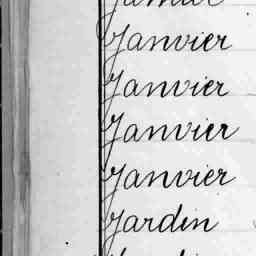 Janvier
Janvier
Janvier
Janvier
Janvier
Jardin